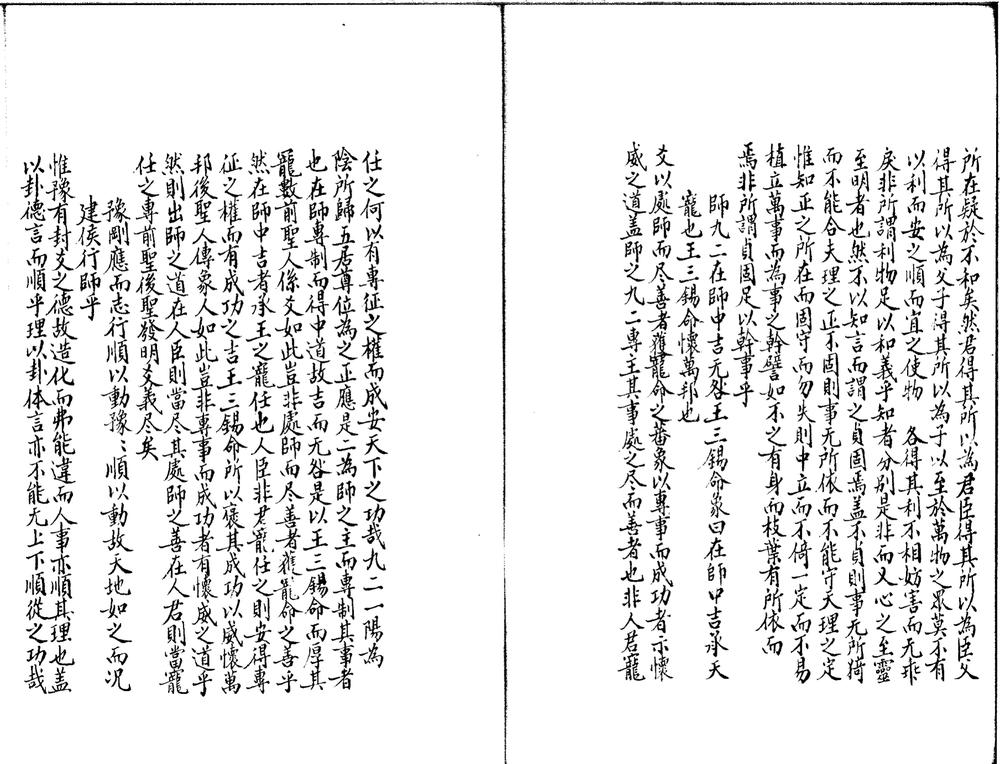 所在疑於不和矣然君得其所以為君臣得其所以為臣父
得其所以為父子得其所以為子以至於萬物之眾莫不有
以利而安之順而宜之使物　各得其利不相妨害而无乖
戾非所謂利物足以和義乎知者分別是非而又心之至靈
至明者也然不以知言而謂之貞固焉盖不貞則事无所猗
而不能合夫理之正不固則事无所依而不能守天理之定
惟知正之所在而固守而勿失則中立而不倚一定而不易
植立萬事而為事之幹譬如木之有身而枝葉有所依而
焉非所謂貞固足以幹事乎
師九二在師中吉无咎王三錫命象曰在師中吉承天
寵也王三錫命懷萬邦也
爻以處師而尽善者獲寵命之蕃象以專事而成功者示懷
威之道盖師之九二專主其事處之尽而善者也非人君寵
任之何以有專征之權而成安天下之功哉九二一陽為
陰所歸五居尊位為之正應是二為師之主而專制其事者
也在師專制而得中道故吉而无咎是以王三錫命而厚其
寵數前聖人係爻如此豈非處師而尽善者獲寵命之善乎
然在師中吉者承王之寵任也人臣非君寵任之則安得專
征之權而有成功之吉王三錫命所以褒其成功以威懷萬
邦後聖人傳象人如此豈非專事而成功者有懷威之道乎
然則出師之道在人臣則當尽其處師之善在人君則當寵
任之專前聖後聖發明爻義尽矣
豫剛應而志行順以動豫：順以動故天地如之而况
建侯行師乎
惟豫有封爻之德故造化而弗能違而人事亦順其理也盖
以卦德言而順乎理以卦体言亦不能无上下順從之功哉